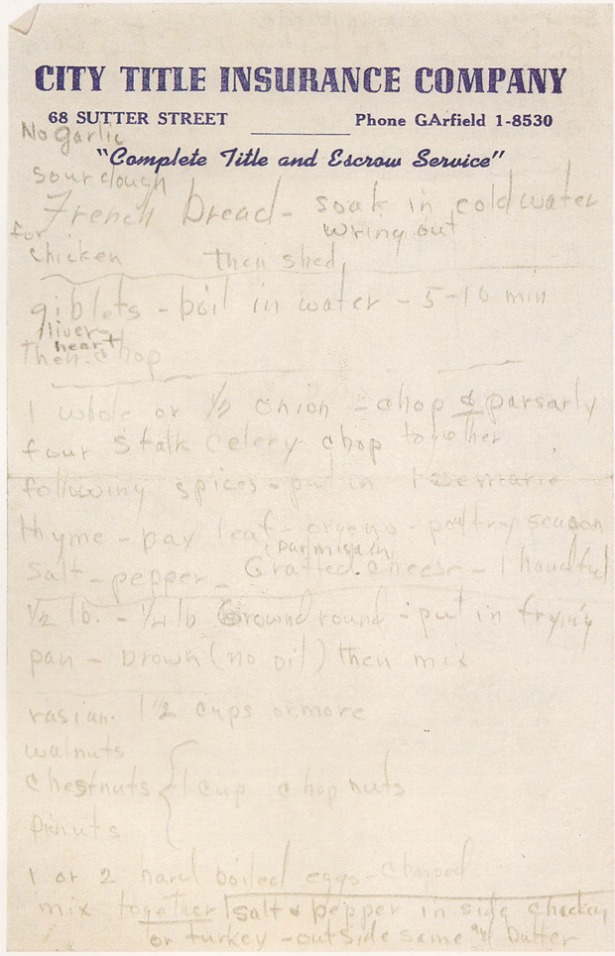 CITY TITLE INSURANCE COMPANY
68 SUTTER STREET Phone GArfield 1-8530
No Garlic
"Complete Title and Escrow Service"
sourdough
French bread - soak in cold water
for wring out
chicken then shed
giblets - boil in water - 5-10 min
liver
heart
then chop
1 whole or 1/2 onion - chop & parsarly
four stalk celery chop together
following spices - put in rosemarie
thyme - bay leaf - oregeno - poultry season
parmisain
salt - pepper - Gratted cheese - 1 handful
1/2 lb. - 1/4 lb Ground round - put in frying
pan - brown (no oil) then mix
rasian. 1 1/2 cups or more
walnuts
chestnuts { 1 cup chop nuts
pinuts
1 or 2 hard boiled eggs - chopped
mix together salt & pepper in side chicken
or turkey - outside same and butter